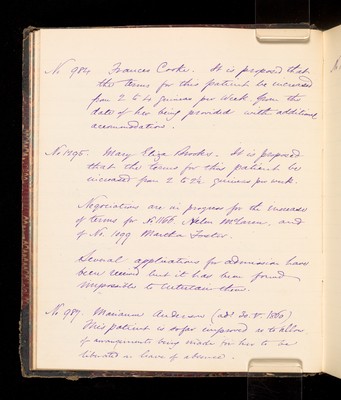 No 984 Frances Cooke. It is proposed that
the terms for this patient be increased
from 2 to 4 guineas per week from the
date of her being provided with additional
accommodation.
No 1295. Mary Eliza Brooks. It is proposed
that the terms for this patient be
increased from 2 to 2½ guineas per week.
Negociations are in progress for the increase
of terms for No 1166 Helen McLaren, and
of No. 1299 Martha Foster.
Several applications for admission have
been received but it has been found
impossible to entertain them.
No 987. Marianne Anderson (adm 20. 8. 1860)
This patient is so far improved as to allow
of arrangements being made for her to be
liberated on leave of absence.